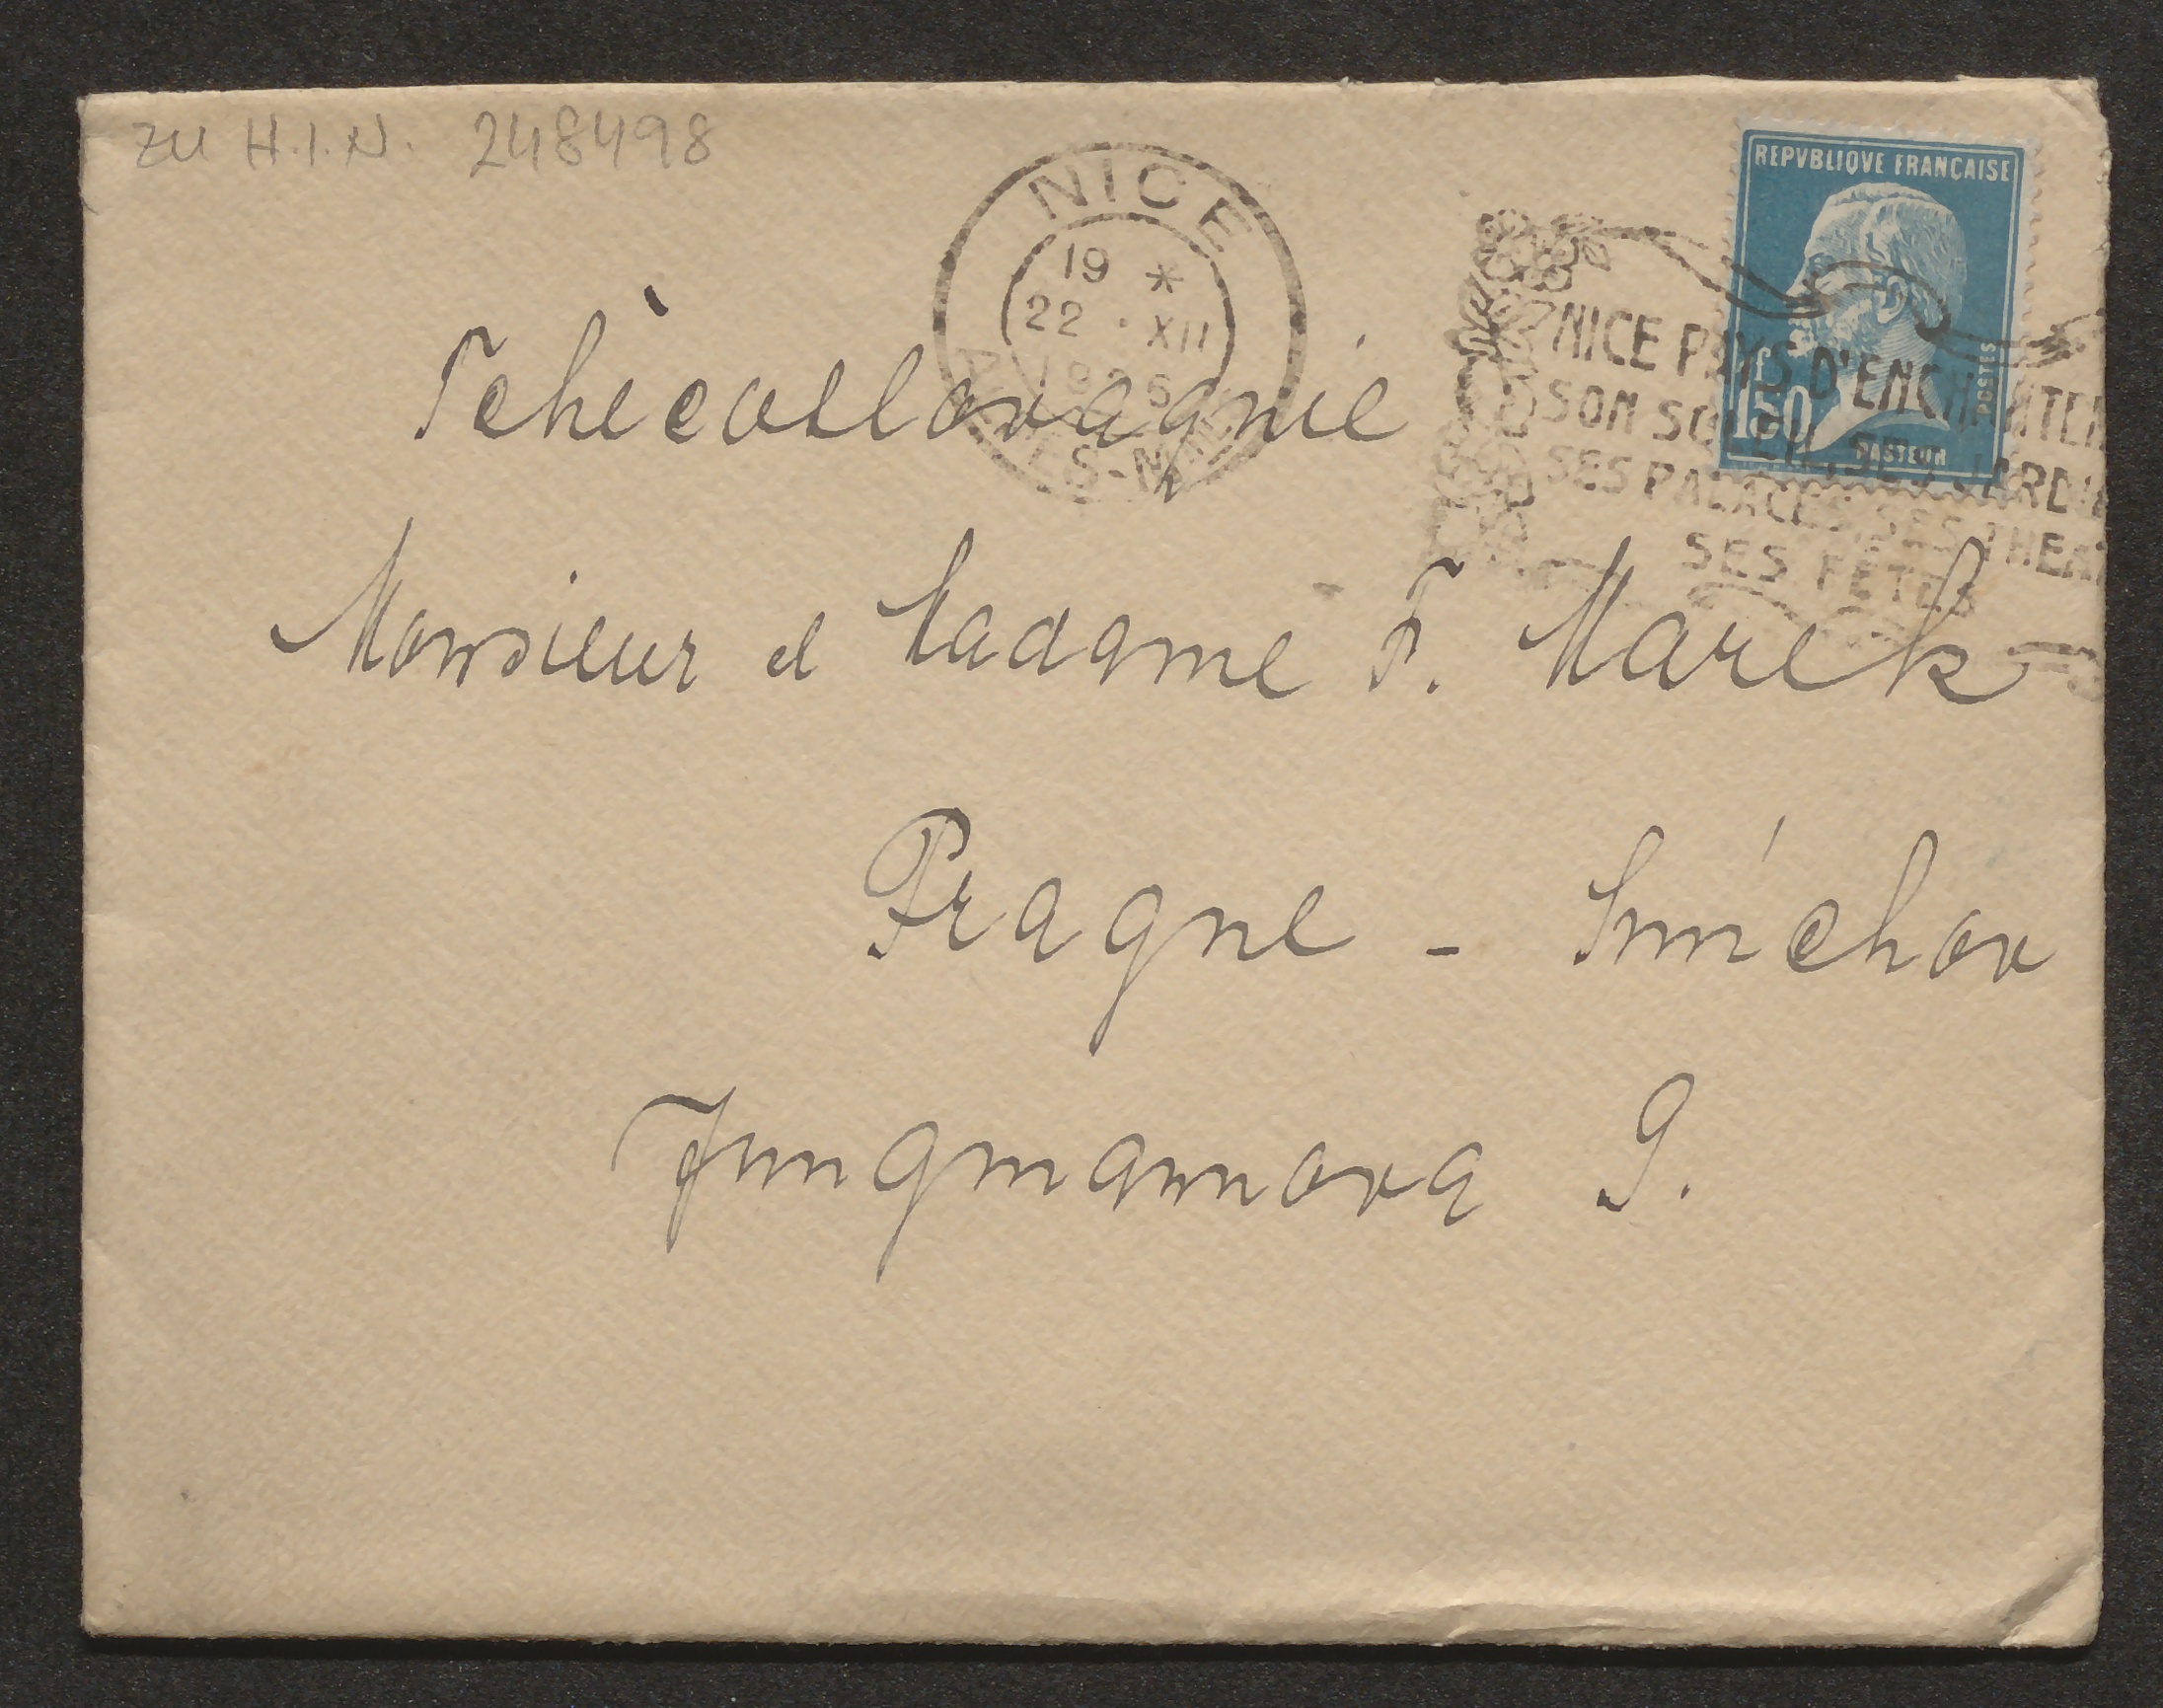 ZU H.I.N. 248498
NICE
19 *
22 · XII
1926
ALPES-MMES
REPVBLIQVE FRANCAISE
1f50
POSTES
PASTEUR
NICE PAYS D'ENCHANTEM
SON SOLEIL, SES JARDIN
SES PALACES, SES THEAT
SES FÊTES
Tchècoslovaquie
Monsieur et Madame F. Marek
Prague - Smíchov
Jungmannova 9.